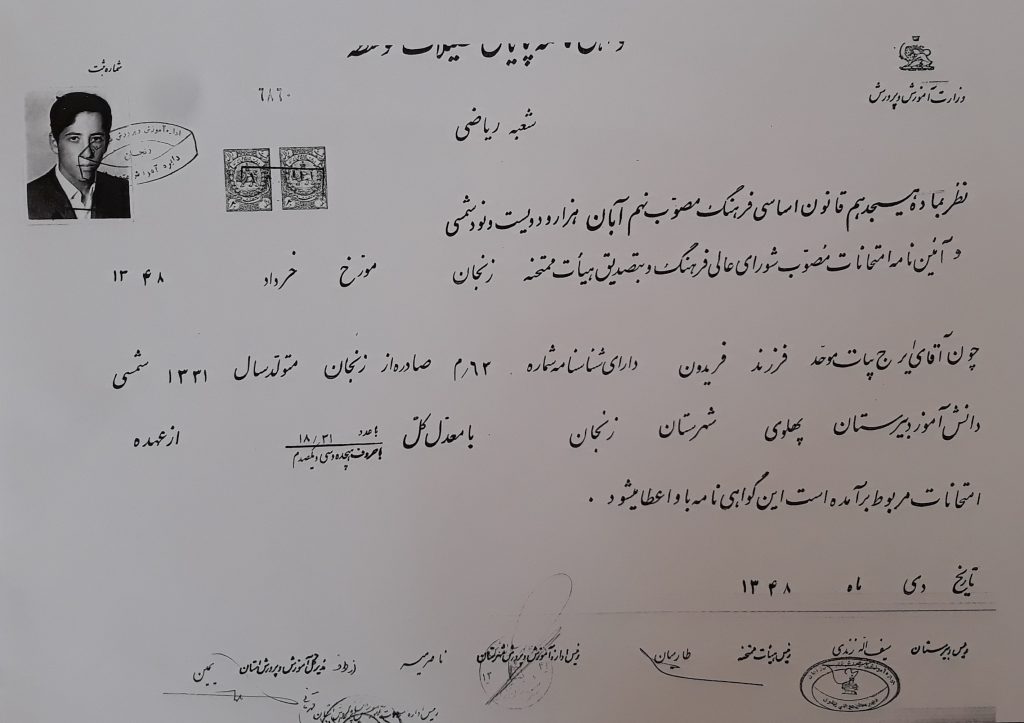 وزارت آموزش و پرورش
شماره ثبت
۶۸۶۰
شعبه ریاضی
نظر بماده هیسجدهم قانون اساسی فرهنگ مصوّب نهم آبان هزار و دویست و نود شمسی
و آئین نامه امتحانات مصوّب شورای عالی فرهنگ و بتصدیق هیأت ممتحنه زنجان مورّخ خرداد ۱۳۴۸
چون آقای ایرج بیات موحّد فرزند فریدون دارای شناسنامه شماره ۶۲/م صادره از زنجان متولّد سال ۱۳۳۱ شمسی
دانش آموز دبیرستان پهلوی شهرستان زنجان با معدّل کلّ با عدد ۱۸/۳۱ از عهده
با حروف هیجده و سی و یکصدم
امتحانات مربوط برآمده است این گواهی نامه باو اعطا میشود .
تاریخ دی ماه ۱۳۴۸
رئیس دبیرستان سیف اله زندی رئیس هیأت ممتحنه طارمیان رئیس اداره آموزش و پرورش شهرستان مدیر کلّ آموزش و پرورش استان